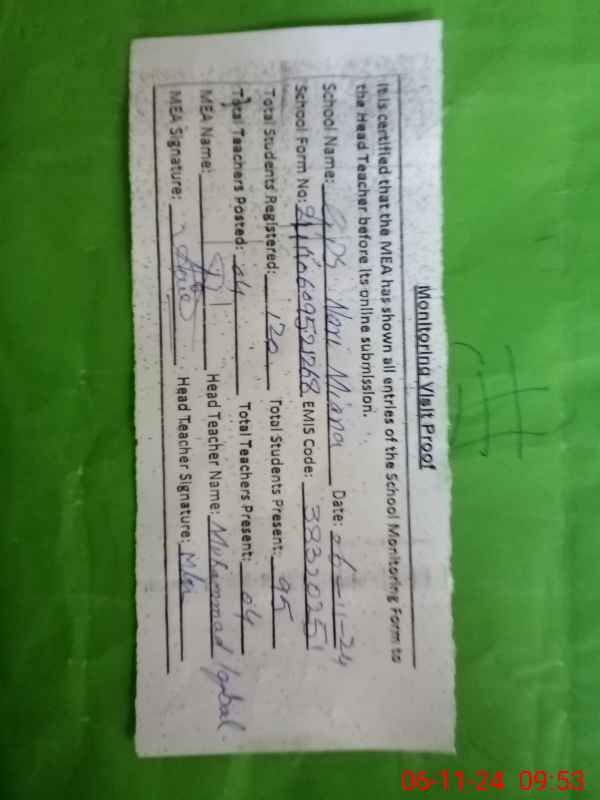 Monitoring Visit Proof
It is certified that the MEA has shown all entries of the School Monitoring Form to
the Head Teacher before its online submission.
School Name: GPS Nari Miana Date: 06-11-24
School Form No: EMIS Code: 38320251
Total Students Registered: 120 Total Students Present: 95
Total Teachers Posted: 04 Total Teachers Present: 04
MEA Name: Head Teacher Name: Muhammad Iqbal.
MEA Signature: Head Teacher Signature:
06-11-24 09:53